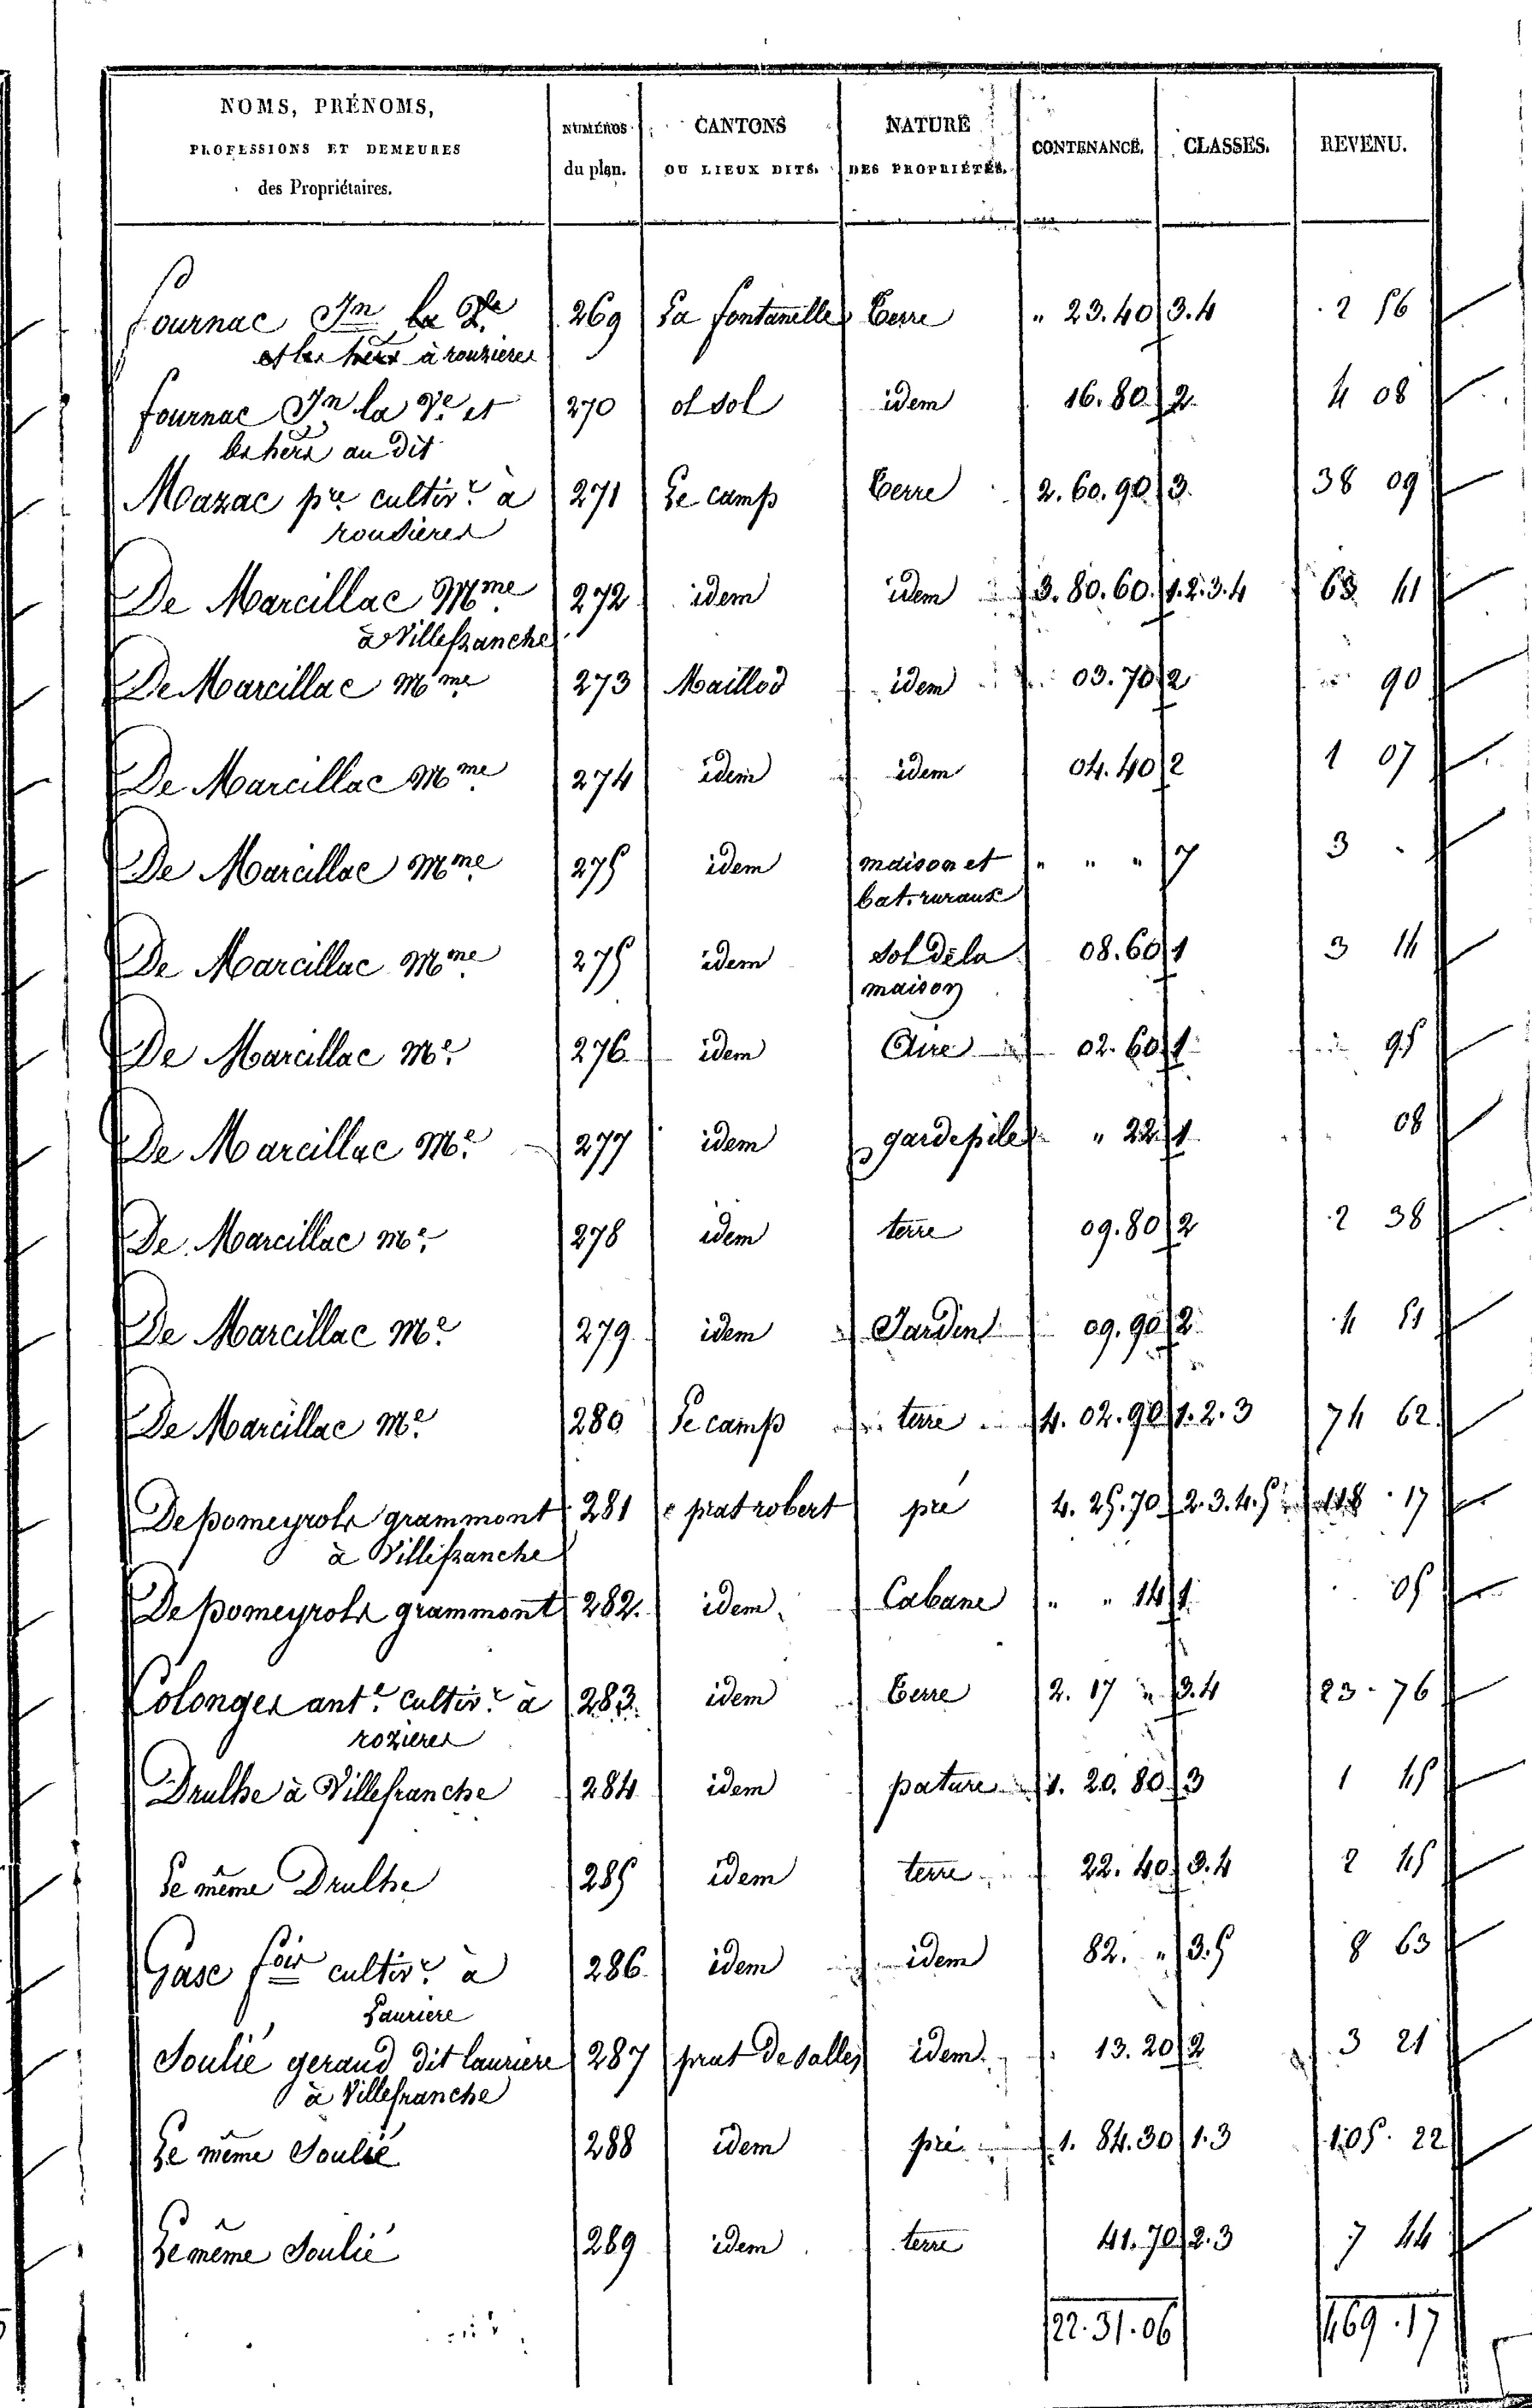 NOMS, PRÉNOMS, PROFESSIONS ET DEMEURES des Propriétaires. | NUMÉROS du plan. | CANTONS OU LIEUX DITS. | NATURE DES PROPRIÉTÉS. | CONTENANCE. | CLASSES. | REVENU.
fournac Jn la Ve | 269 | La fontanelle | Terre | " 23.40 | 3.4 | 2 56
et les hers à rouzieres
fournac Jn la Ve et | 270 | ol sol | idem | 16.80 | 2 | 4 08
les hers au dit
Mazac pre cultivr à | 271 | Le camp | Terre | 2.60.90 | 3 | 38 09
rousieres
De Marcillac Mme | 272 | idem | idem | 3.80.60 | 1.2.3.4 | 63 41
à Villefranche
De Marcillac Mme | 273 | Maillod | idem | 03.70 | 2 | 90
De Marcillac Mme | 274 | idem | idem | 04.40 | 2 | 1 07
De Marcillac Mme | 275 | idem | maison et | " " " | 7 | 3 "
bat. ruraux
De Marcillac Mme | 275 | idem | Sol de la | 08.60 | 1 | 3 14
maison
De Marcillac Me | 276 | idem | Aire | 02.60 | 1 | 95
De Marcillac Me | 277 | idem | gardepile | " 22 | 1 | 08
De Marcillac Me | 278 | idem | terre | 09.80 | 2 | 2 38
De Marcillac Me | 279 | idem | Jardin | 09.90 | 2 | 4 51
De Marcillac Me | 280 | Le camp | terre | 4.02.90 | 1.2.3 | 74 62
De pomeyrols grammont | 281 | prat robert | pré | 4.25.70 | 2.3.4.5 | 118 17
à Villefranche
De pomeyrols grammont | 282. | idem | Cabane | " " 14 | 1 | 05
Colonges ante cultivr à | 283 | idem | Terre | 2. 17 " | 3.4 | 23 76
rozieres
Drulhe à Villefranche | 284 | idem | pature | 1. 20. 80 | 3 | 1 45
Le même Drulhe | 285 | idem | terre | 22.40 | 3.4 | 2 45
Gasc fois cultivr à | 286 | idem | idem | 82. " | 3.5 | 8 63
Lauriere
Soulié geraud dit lauriere | 287 | prat de salles | idem | 13.20 | 2 | 3 21
à Villefranche
Le même Soulié | 288 | idem | pré | 1. 84.30 | 1.3 | 105 22
Le même Soulié | 289 | idem | terre | 41.70 | 2.3 | 7 44
22.31.06 | 469.17